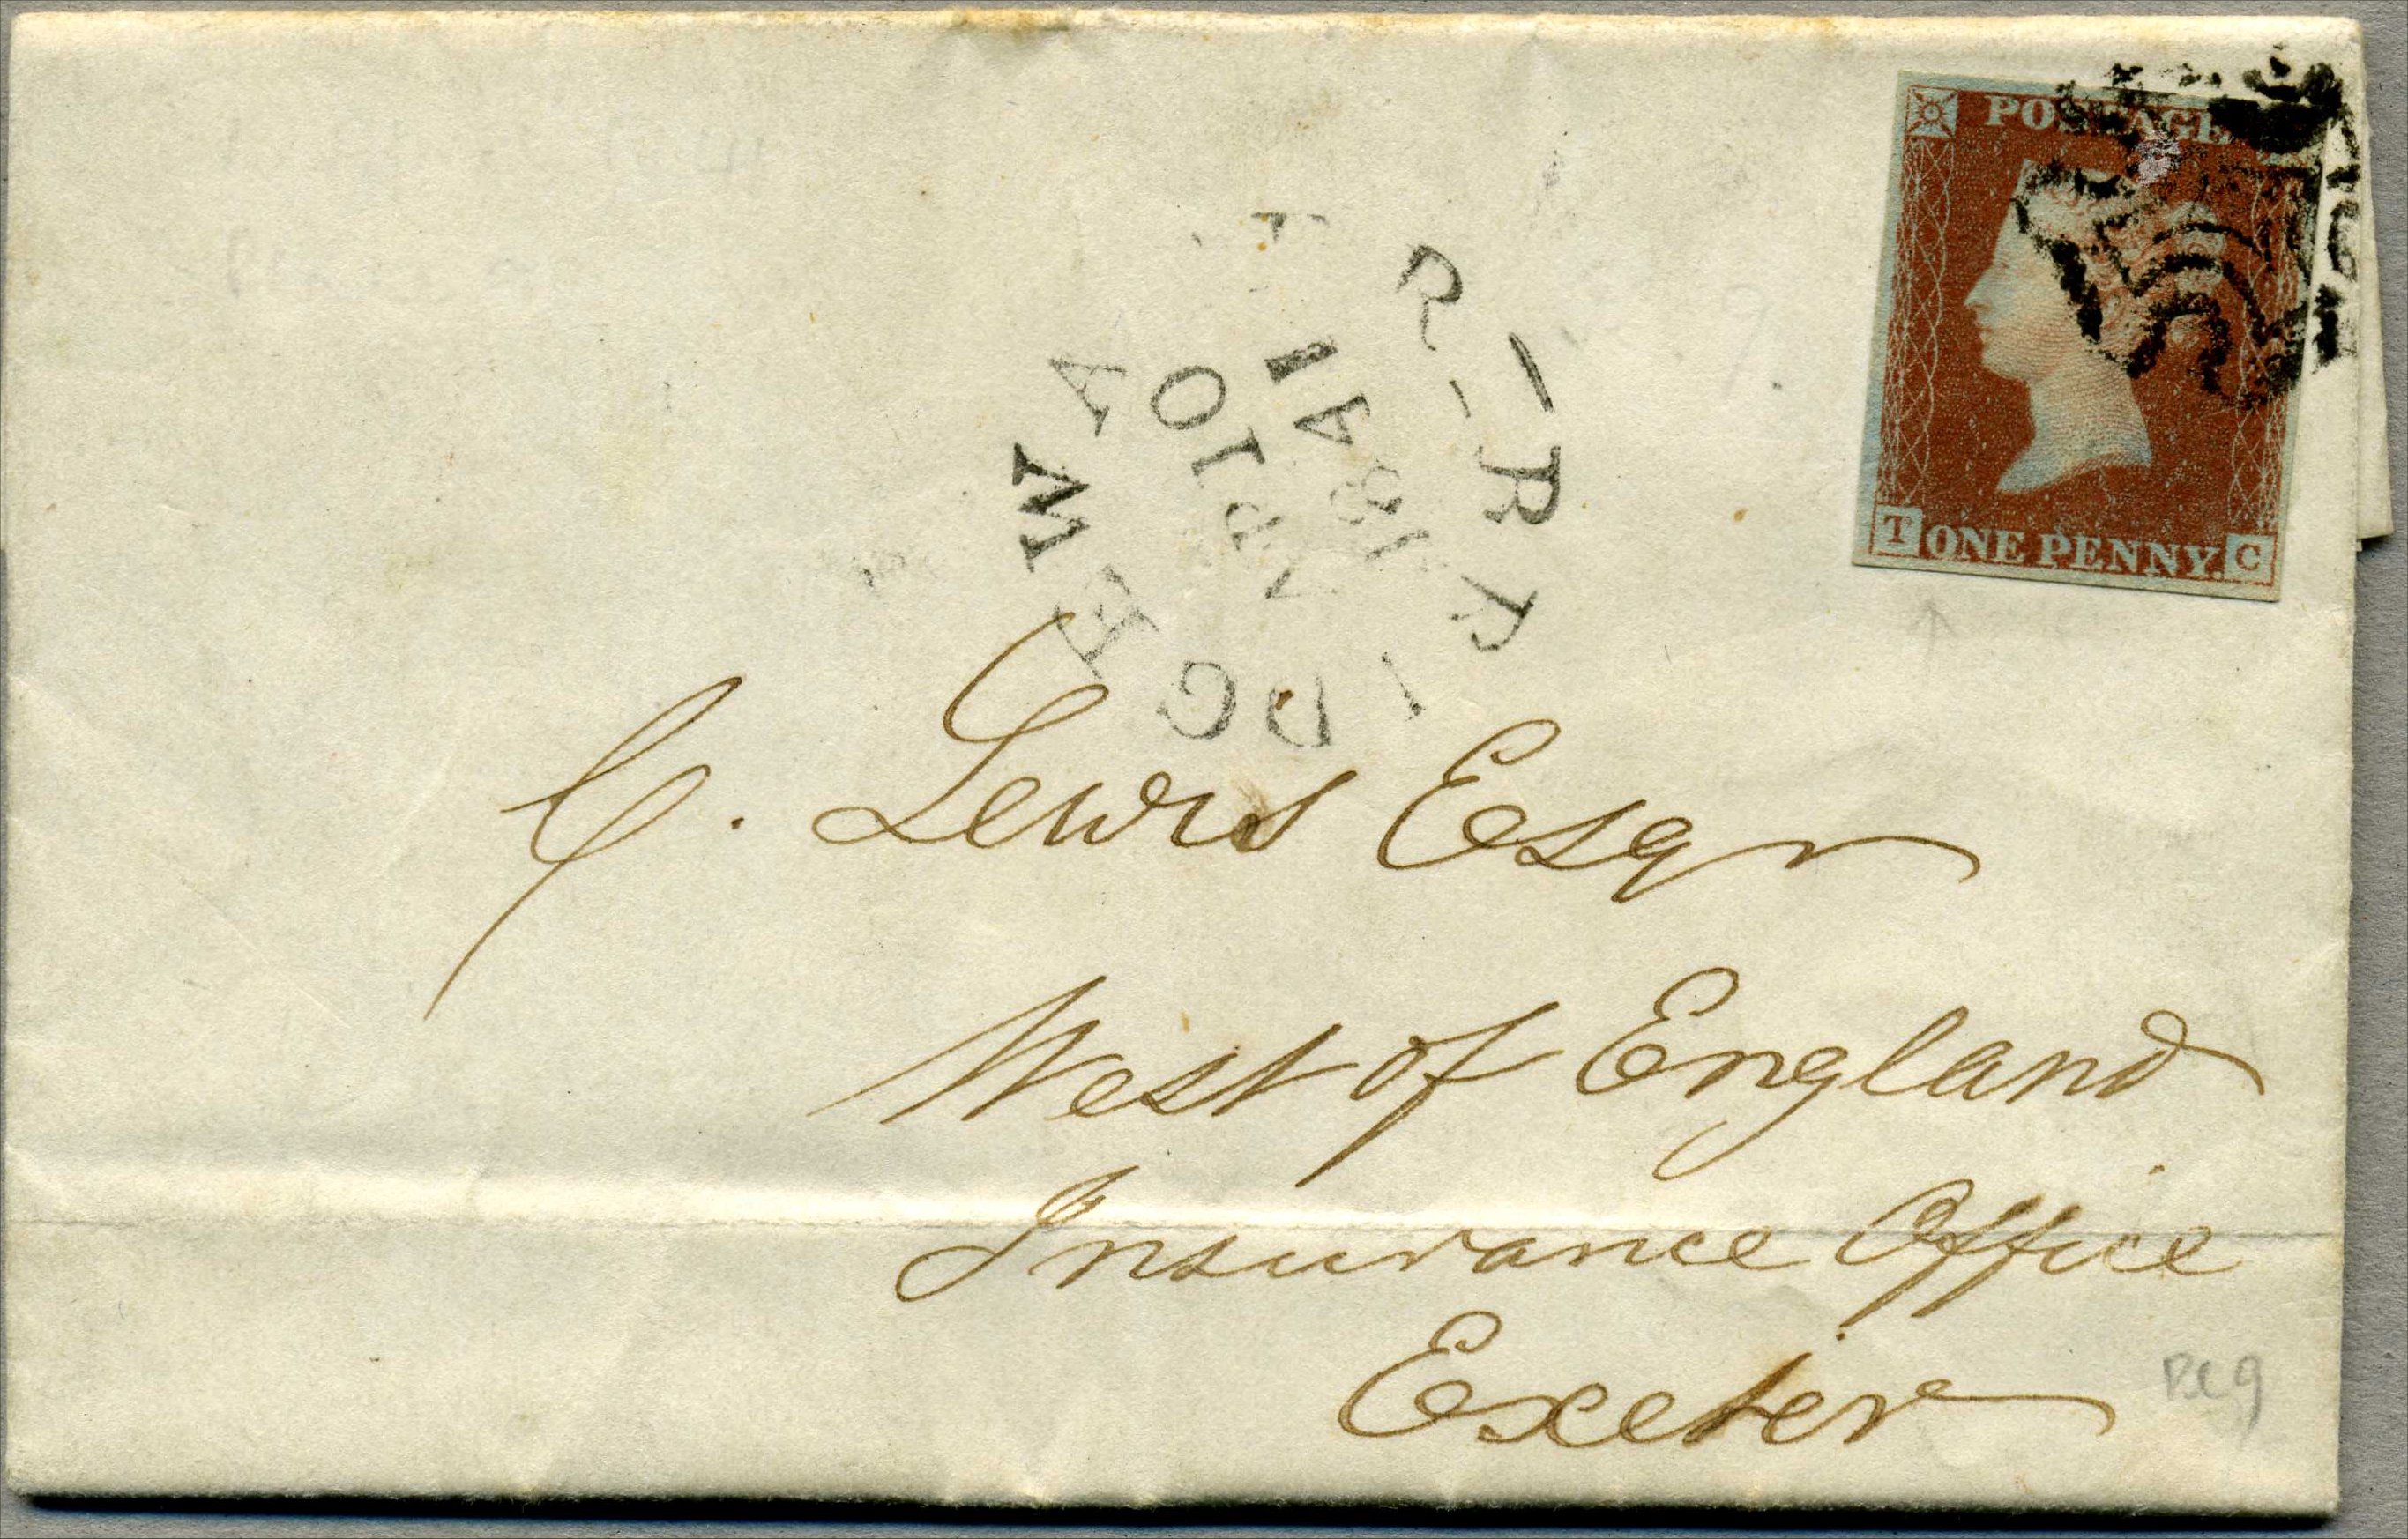 POSTAGE
T ONE PENNY. C
BRIDGEWATER
AP 10
1841
C. Lewis Esqr
West of England
Insurance Office
Exeter